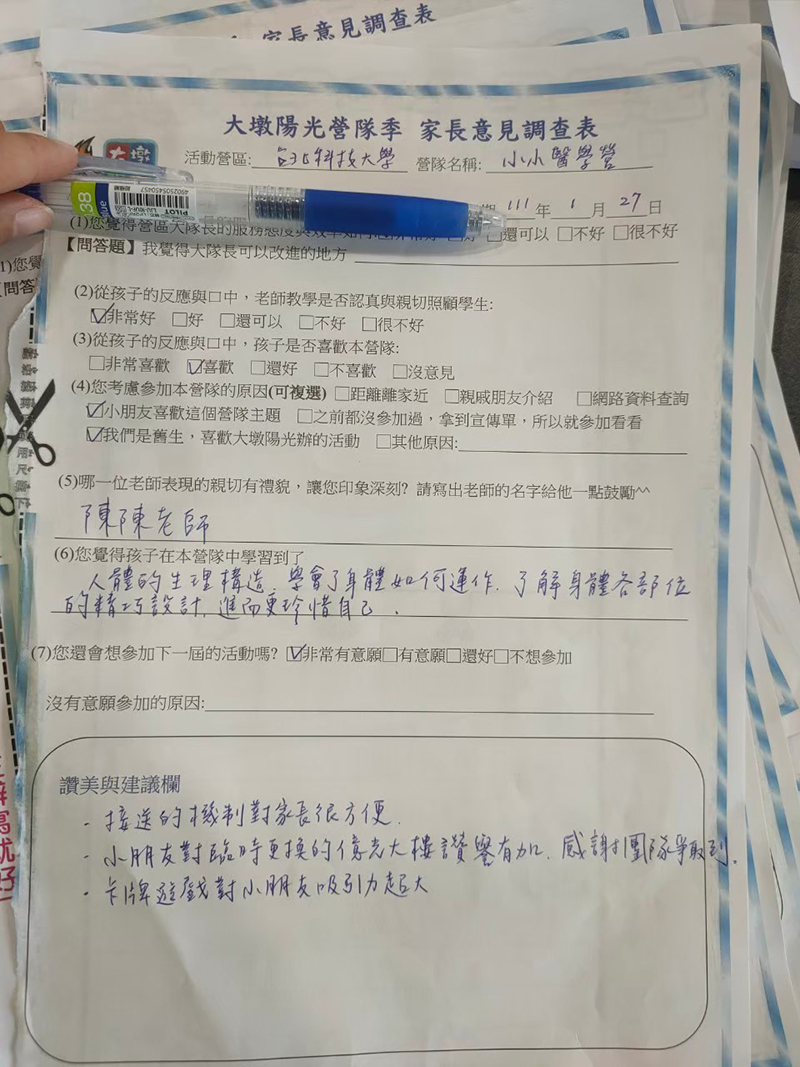 家長意見調查表
大墩陽光營隊季 家長意見調查表
大墩
活動營區: 台北科技大學 營隊名稱: 小小醫學營
期 111 年 1 月 27 日
(1)您覺得營區大隊長的服務態度與效率如何 □還可以 □不好 □很不好
【問答題】我覺得大隊長可以改進的地方
(2)從孩子的反應與口中，老師教學是否認真與親切照顧學生:
☑非常好 □好 □還可以 □不好 □很不好
(3)從孩子的反應與口中，孩子是否喜歡本營隊:
□非常喜歡 ☑喜歡 □還好 □不喜歡 □沒意見
(4)您考慮參加本營隊的原因(可複選) □距離離家近 □親戚朋友介紹 □網路資料查詢
☑小朋友喜歡這個營隊主題 □之前都沒參加過，拿到宣傳單，所以就參加看看
☑我們是舊生，喜歡大墩陽光辦的活動 □其他原因:
(5)哪一位老師表現的親切有禮貌，讓您印象深刻? 請寫出老師的名字給他一點鼓勵^^
陳陳老師
(6)您覺得孩子在本營隊中學習到了
人體的生理構造, 學會了身體如何運作, 了解身體各部位
的精巧設計, 進而更珍惜自己.
(7)您還會想參加下一屆的活動嗎? ☑非常有意願□有意願□還好□不想參加
沒有意願參加的原因:
讚美與建議欄
- 接送的機制對家長很方便.
- 小朋友對臨時更換的億光大樓讚譽有加, 感謝團隊爭取到.
- 卡牌遊戲對小朋友吸引力超大
PILOT
4902505450457
38
(1)您覺
【問答